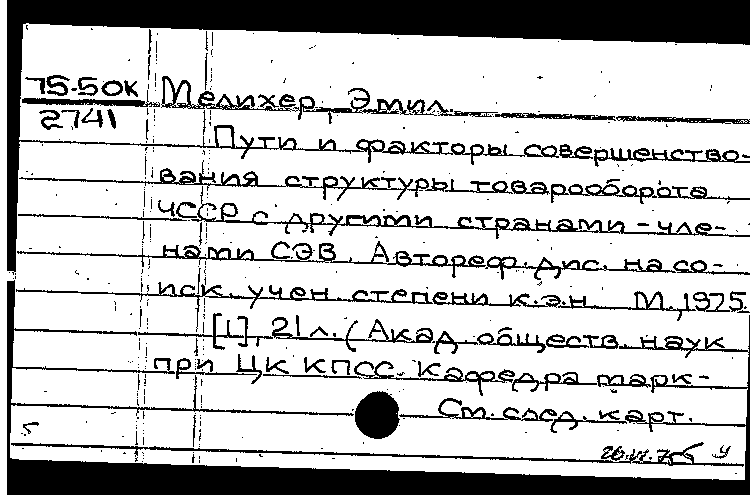 75-50к Мелихер, Эмил.
2741
Пути и факторы совершенство-
вания структуры товарооборота
ЧССР с другими странами - чле-
нами СЭВ. Автореф. дис. на со-
иск. учен. степени к.э.н. М., 1975.
[1], 21 л. (Акад. обществ. наук
при ЦК КПСС. Кафедра марк-
См. след. карт.
5